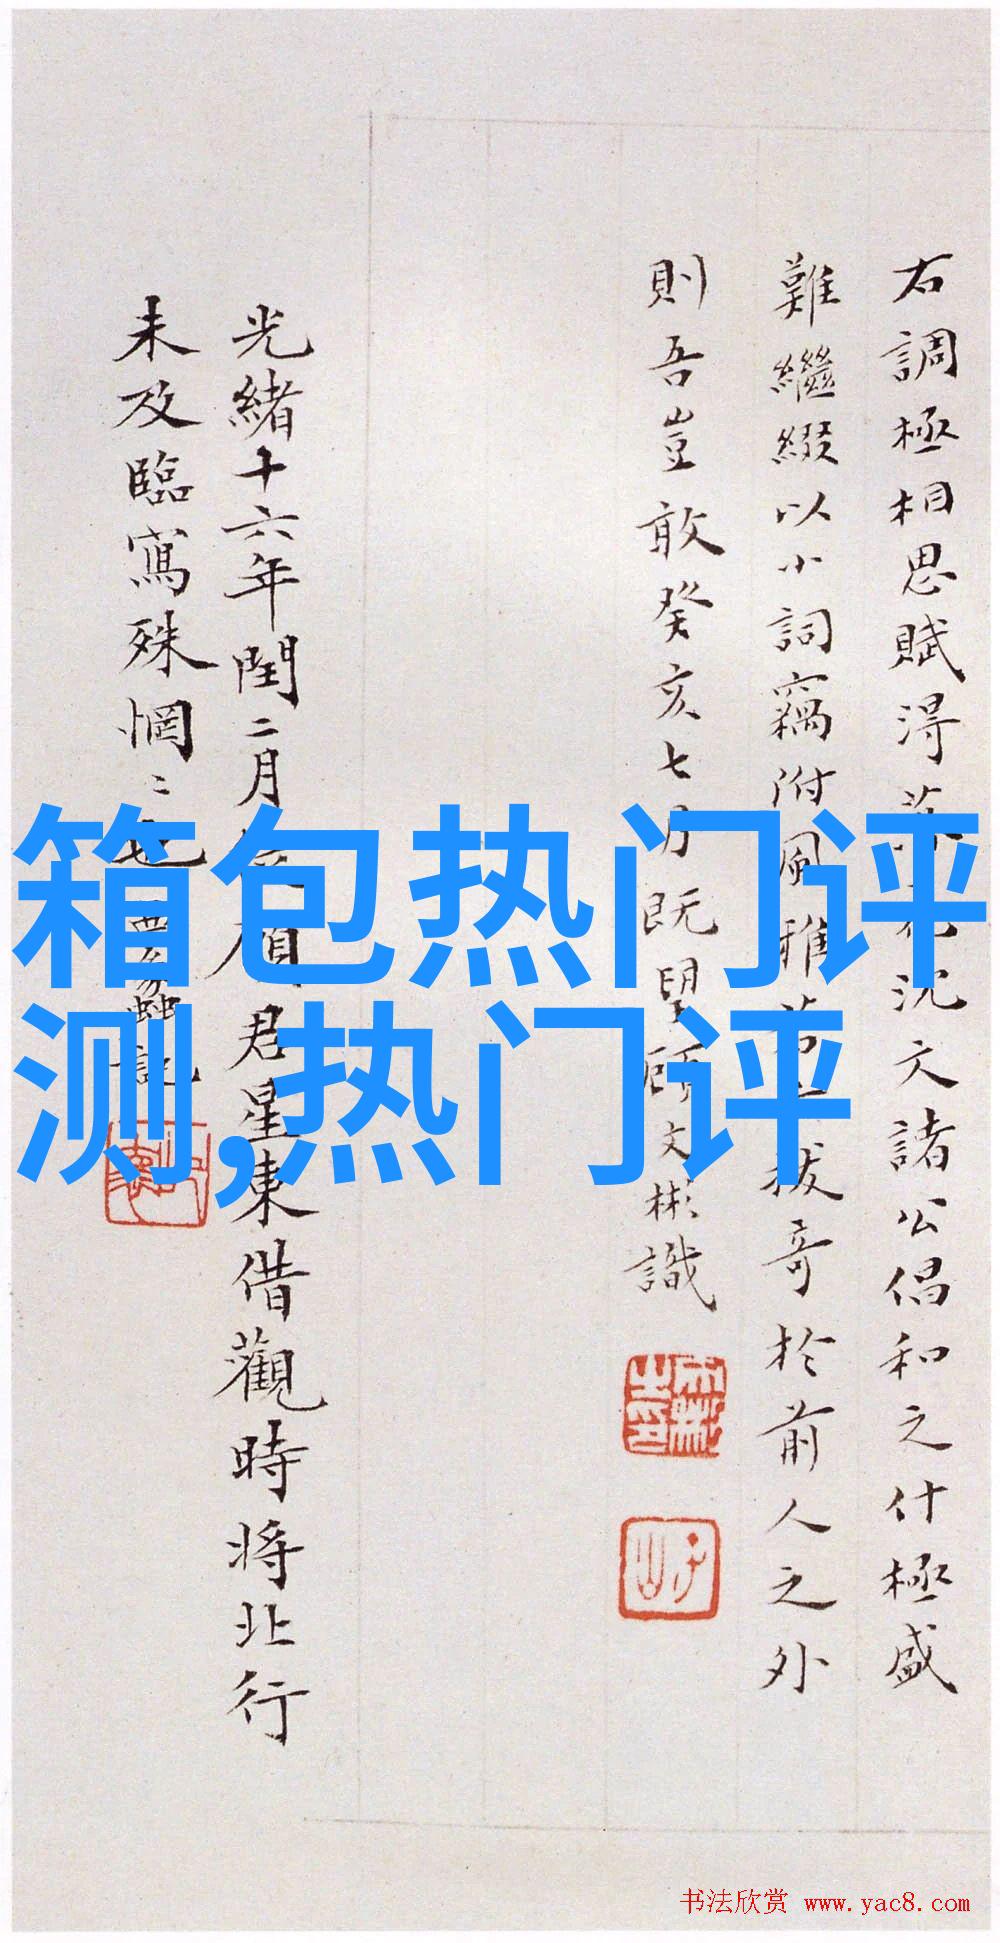 右調極相思賦得
沈文諸公倡和之什極盛
難繼綴以小詞竊附風雅
拔奇於前人之外
則吾豈敢癸亥七月既望
文彬識
光緒十六年閏二月
君星東借觀時將北行
未及臨寫殊惘〻
記
箱包热门评
测,热门评
书法欣赏 www.yac8.com